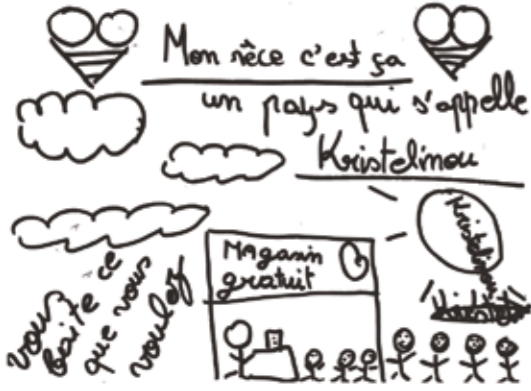 Mon rèce c'est ça
un pays qui s'appelle
Kristelinou
Kristelinou
Magasin
gratuit
vous
faite ce
que vous
voulez